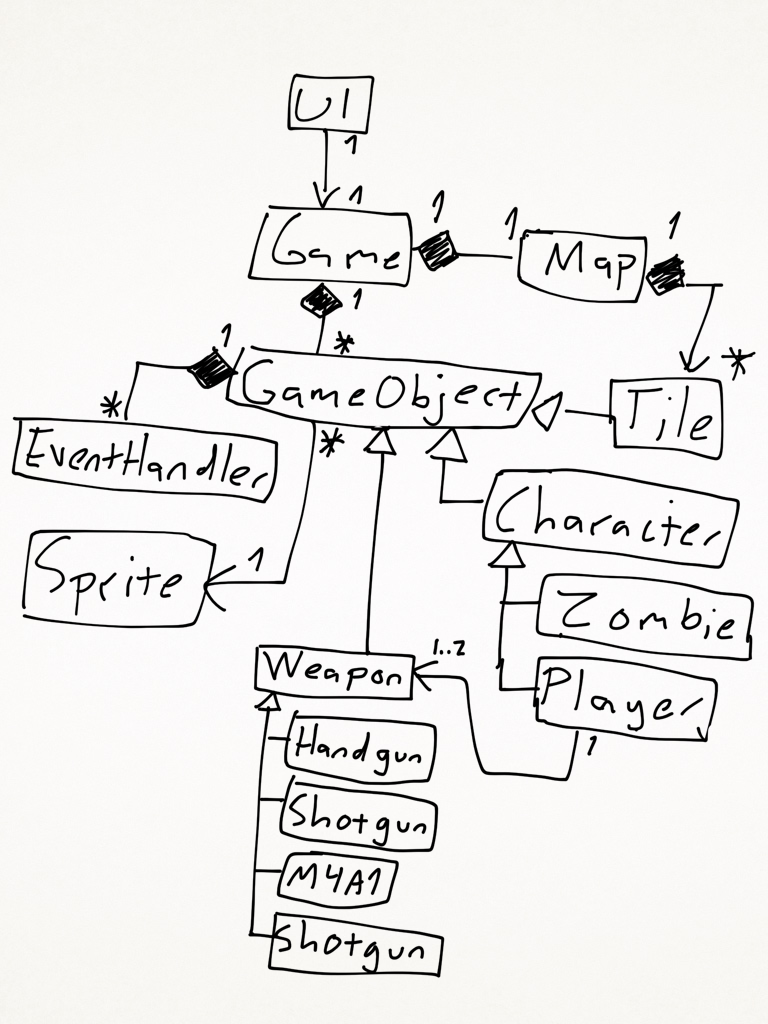 UI
1
1
Game
1
1
Map
1
1
*
*
1
*
GameObject
Tile
EventHandler
*
Character
Sprite
1
Zombie
Weapon
1..2
Player
1
Handgun
Shotgun
M4A1
Shotgun